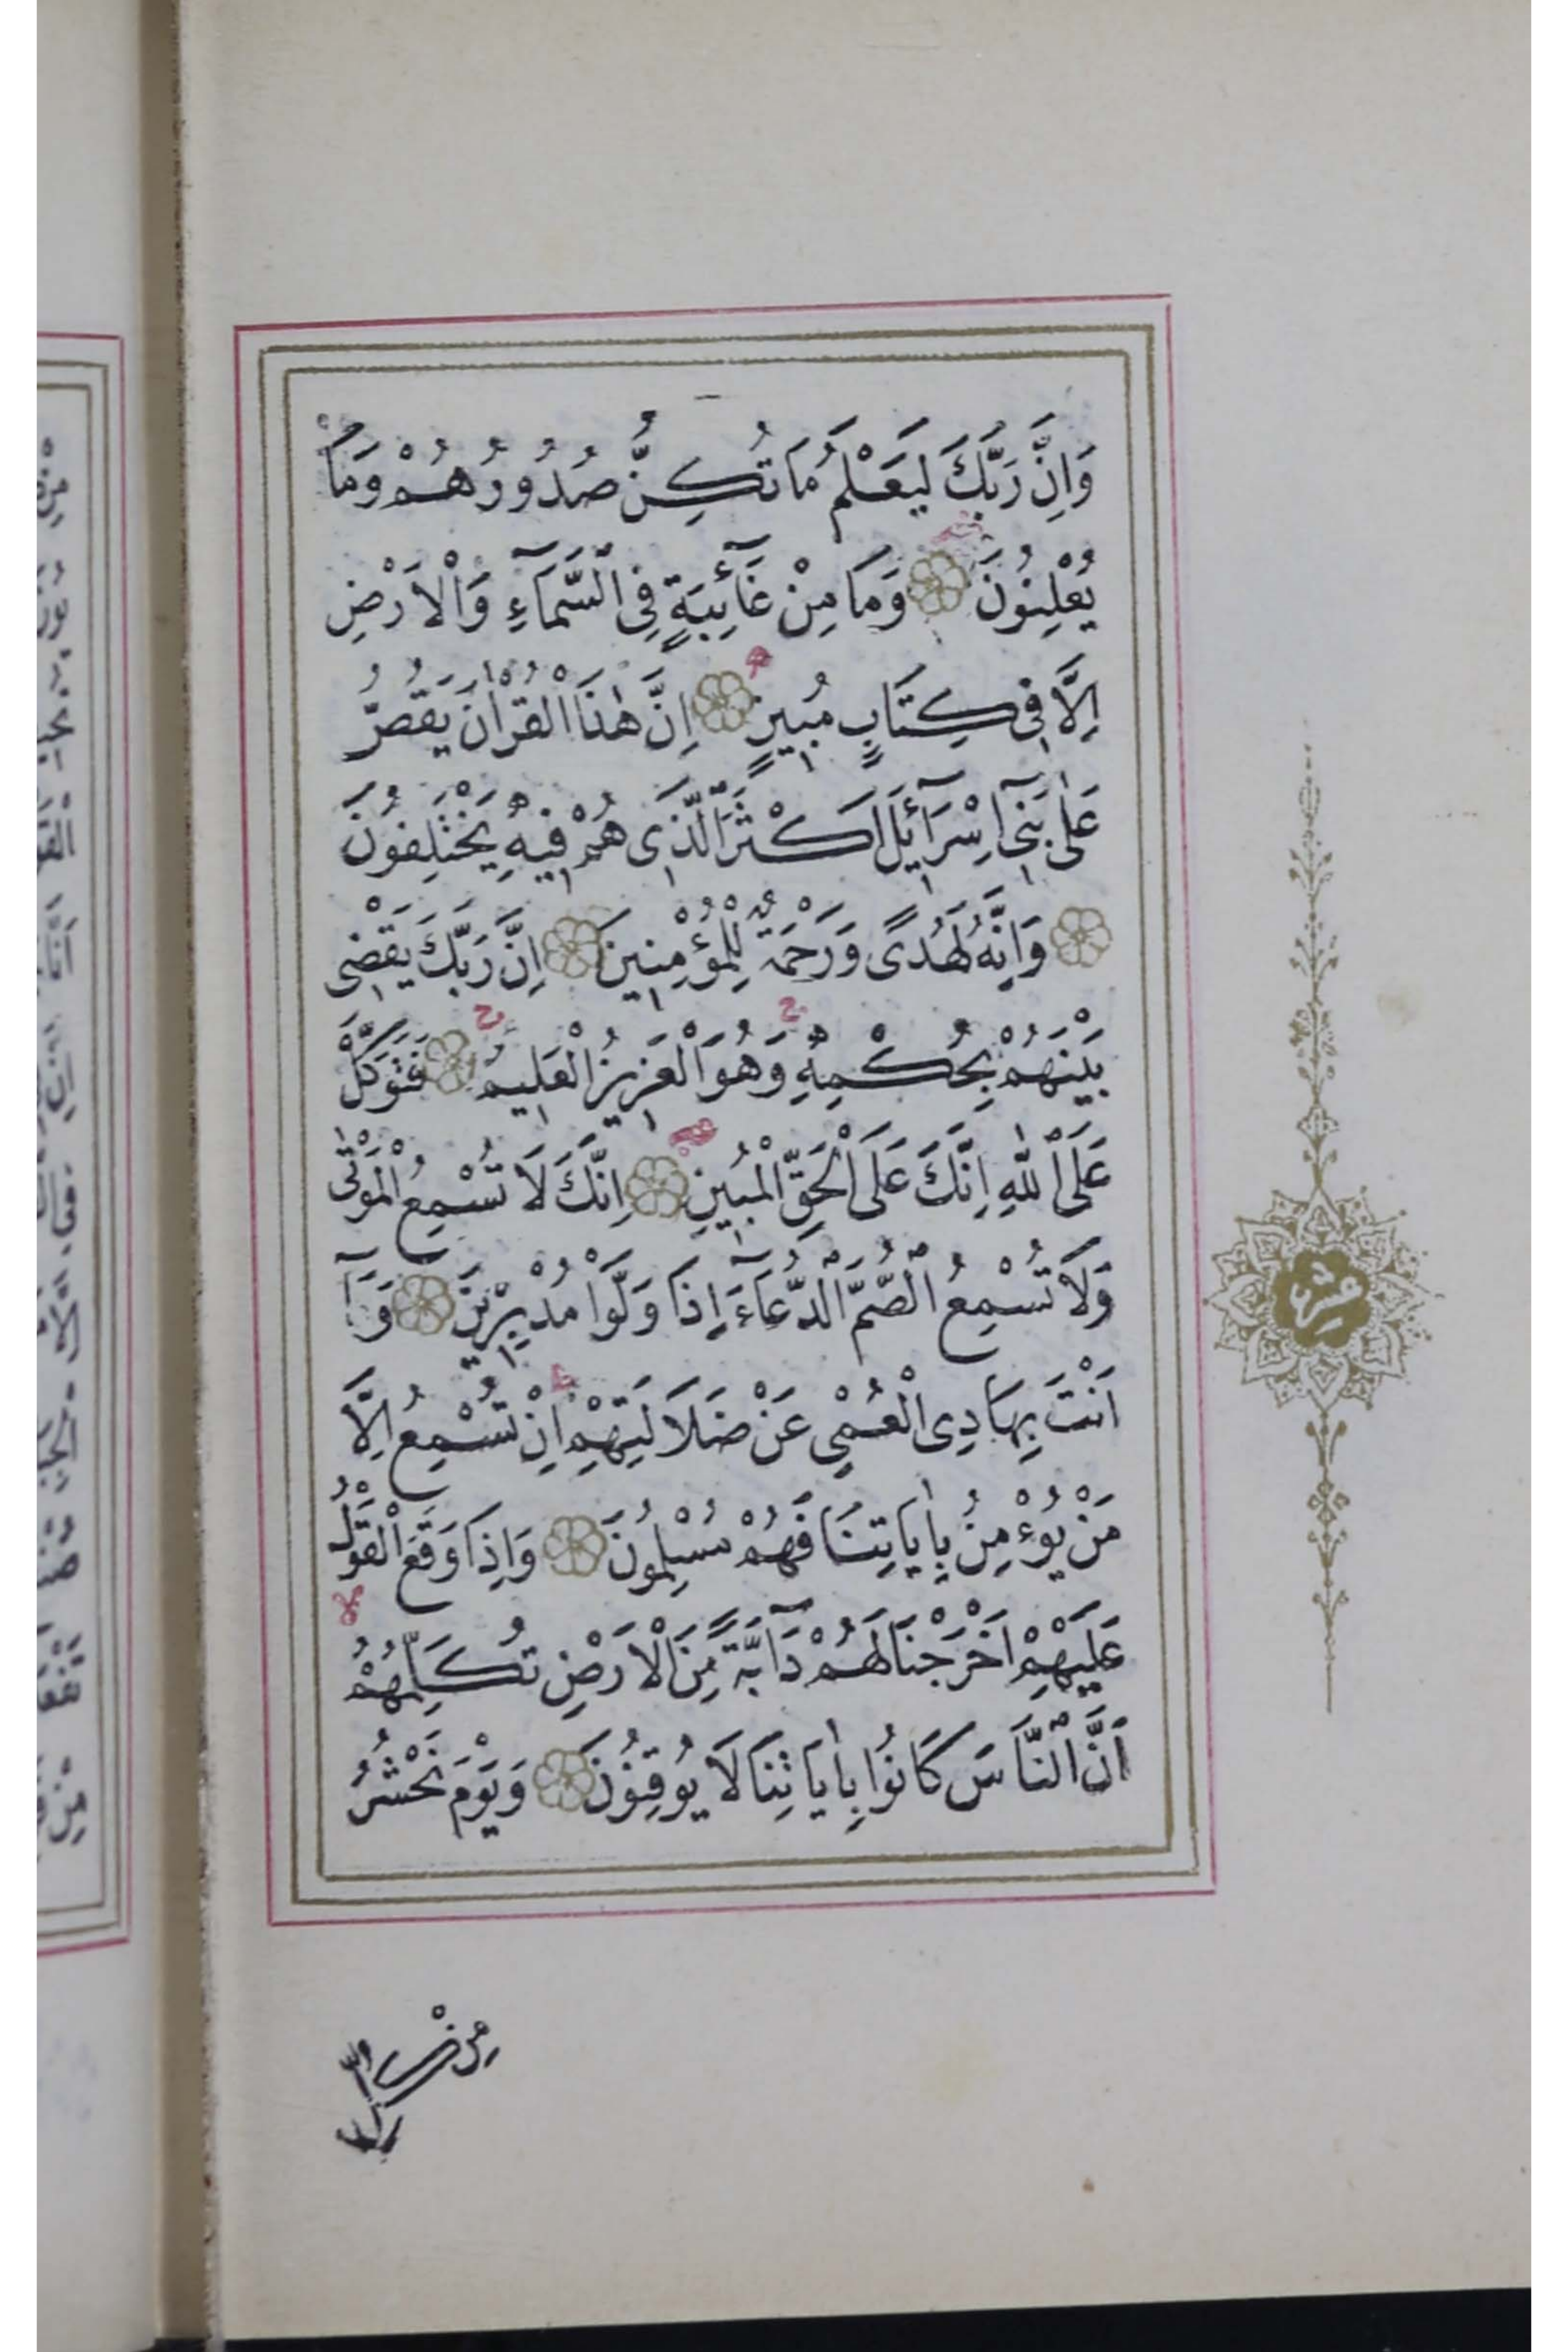 وَاِنَّ رَبَّكَ لَيَعْلَمُ مَا تُكِنُّ صُدُورُهُمْ وَمَا
يُعْلِنُونَ وَمَا مِنْ غَآئِبَةٍ فِى السَّمَآءِ وَالْاَرْضِ
اِلَّا فِى كِتَابٍ مُبِينٍ اِنَّ هٰذَا الْقُرْاٰنَ يَقُصُّ
عَلٰى بَنِىٓ اِسْرَآئِلَ اَكْثَرَ الَّذِى هُمْ فِيهِ يَخْتَلِفُونَ
وَاِنَّهُ لَهُدًى وَرَحْمَةٌ لِلْمُؤْمِنِينَ اِنَّ رَبَّكَ يَقْضِى
بَيْنَهُمْ بِحُكْمِهِ وَهُوَ الْعَزِيزُ الْعَلِيمُ فَتَوَكَّلْ
عَلَى اللّٰهِ اِنَّكَ عَلَى الْحَقِّ الْمُبِينِ اِنَّكَ لَا تُسْمِعُ الْمَوْتٰى
وَلَا تُسْمِعُ الصُّمَّ الدُّعَآءَ اِذَا وَلَّوْا مُدْبِرِينَ وَمَآ
اَنْتَ بِهَادِى الْعُمْىِ عَنْ ضَلَالَتِهِمْ اِنْ تُسْمِعُ اِلَّا
مَنْ يُؤْمِنُ بِاٰيَاتِنَا فَهُمْ مُسْلِمُونَ وَاِذَا وَقَعَ الْقَوْلُ
عَلَيْهِمْ اَخْرَجْنَا لَهُمْ دَآبَّةً مِنَ الْاَرْضِ تُكَلِّمُهُمْ
اَنَّ النَّاسَ كَانُوا بِاٰيَاتِنَا لَا يُوقِنُونَ وَيَوْمَ نَحْشُرُ